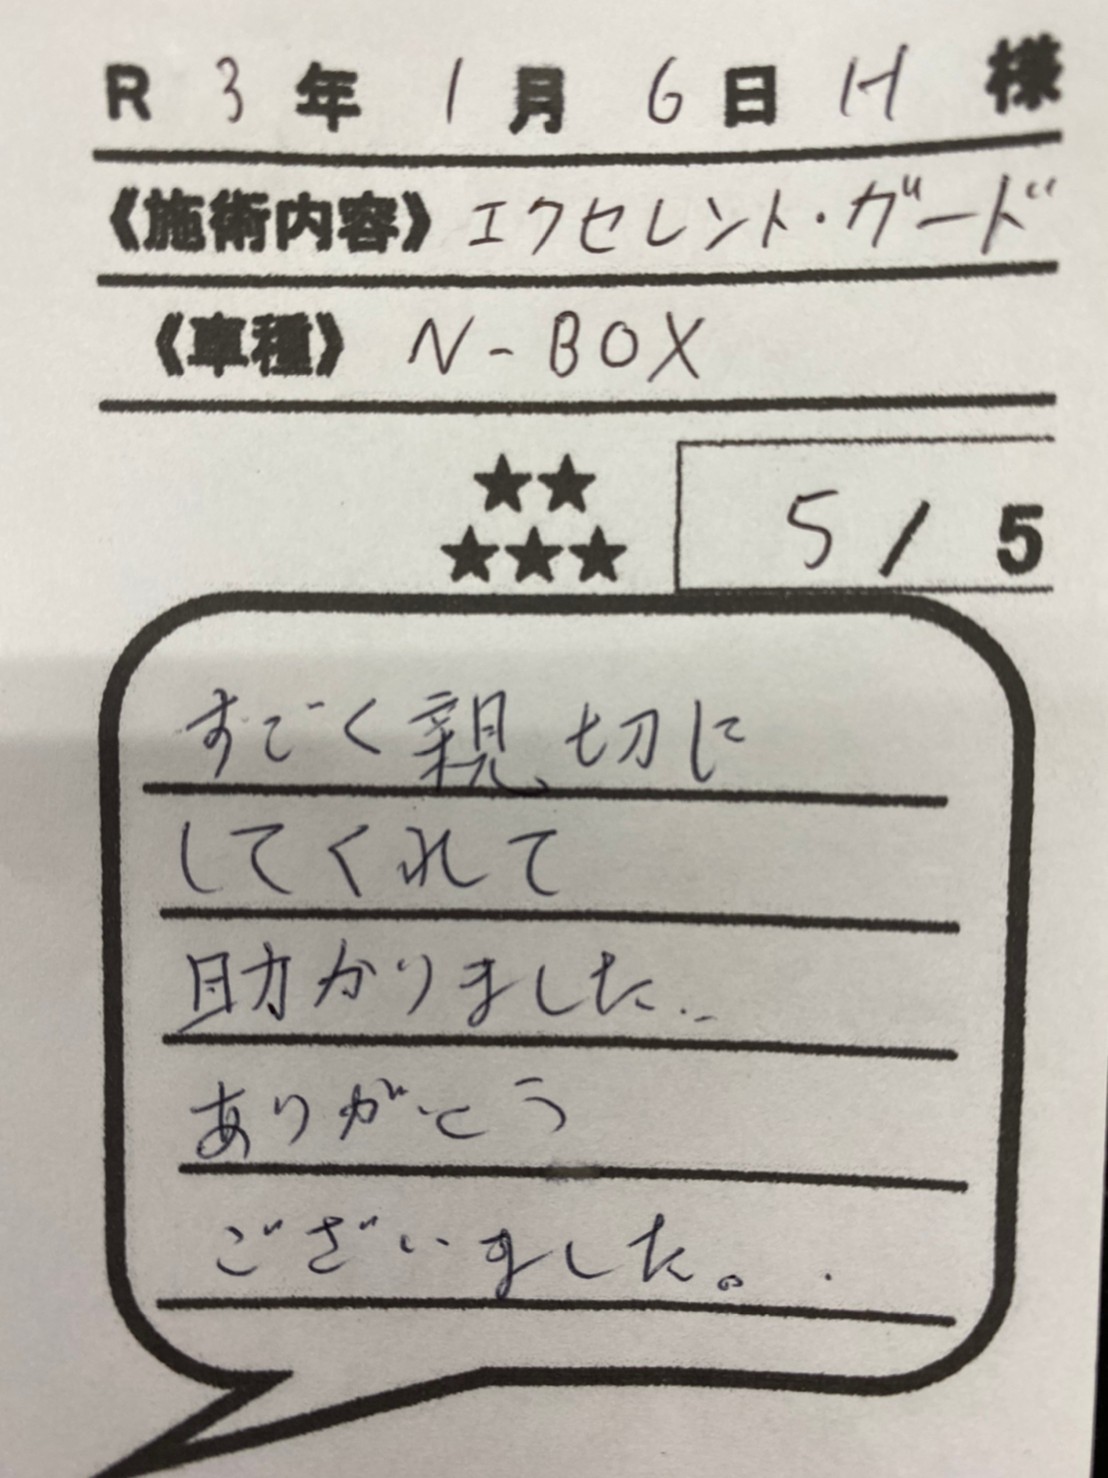 R 3年 1月 6日 H 様
《施術内容》エクセレント・ガード
《車種》N-BOX
★★
★★★
5/5
すごく親切に
してくれて
助かりました..
ありがとう
ございました。